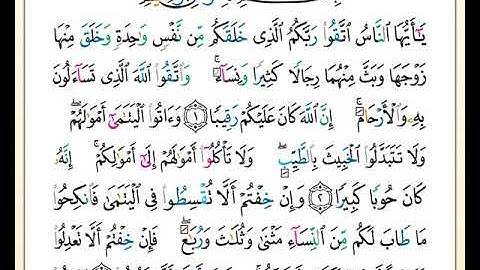 يَـٰٓأَيُّهَا ٱلنَّاسُ ٱتَّقُوا۟ رَبَّكُمُ ٱلَّذِى خَلَقَكُم مِّن نَّفْسٍ وَٰحِدَةٍ وَخَلَقَ مِنْهَا
زَوْجَهَا وَبَثَّ مِنْهُمَا رِجَالًا كَثِيرًا وَنِسَآءً ۚ وَٱتَّقُوا۟ ٱللَّهَ ٱلَّذِى تَسَآءَلُونَ
بِهِۦ وَٱلْأَرْحَامَ ۚ إِنَّ ٱللَّهَ كَانَ عَلَيْكُمْ رَقِيبًا ١ وَءَاتُوا۟ ٱلْيَتَـٰمَىٰٓ أَمْوَٰلَهُمْ ۖ
وَلَا تَتَبَدَّلُوا۟ ٱلْخَبِيثَ بِٱلطَّيِّبِ ۖ وَلَا تَأْكُلُوٓا۟ أَمْوَٰلَهُمْ إِلَىٰٓ أَمْوَٰلِكُمْ ۚ إِنَّهُۥ
كَانَ حُوبًا كَبِيرًا ٢ وَإِنْ خِفْتُمْ أَلَّا تُقْسِطُوا۟ فِى ٱلْيَتَـٰمَىٰ فَٱنكِحُوا۟
مَا طَابَ لَكُم مِّنَ ٱلنِّسَآءِ مَثْنَىٰ وَثُلَـٰثَ وَرُبَـٰعَ ۖ فَإِنْ خِفْتُمْ أَلَّا تَعْدِلُوا۟